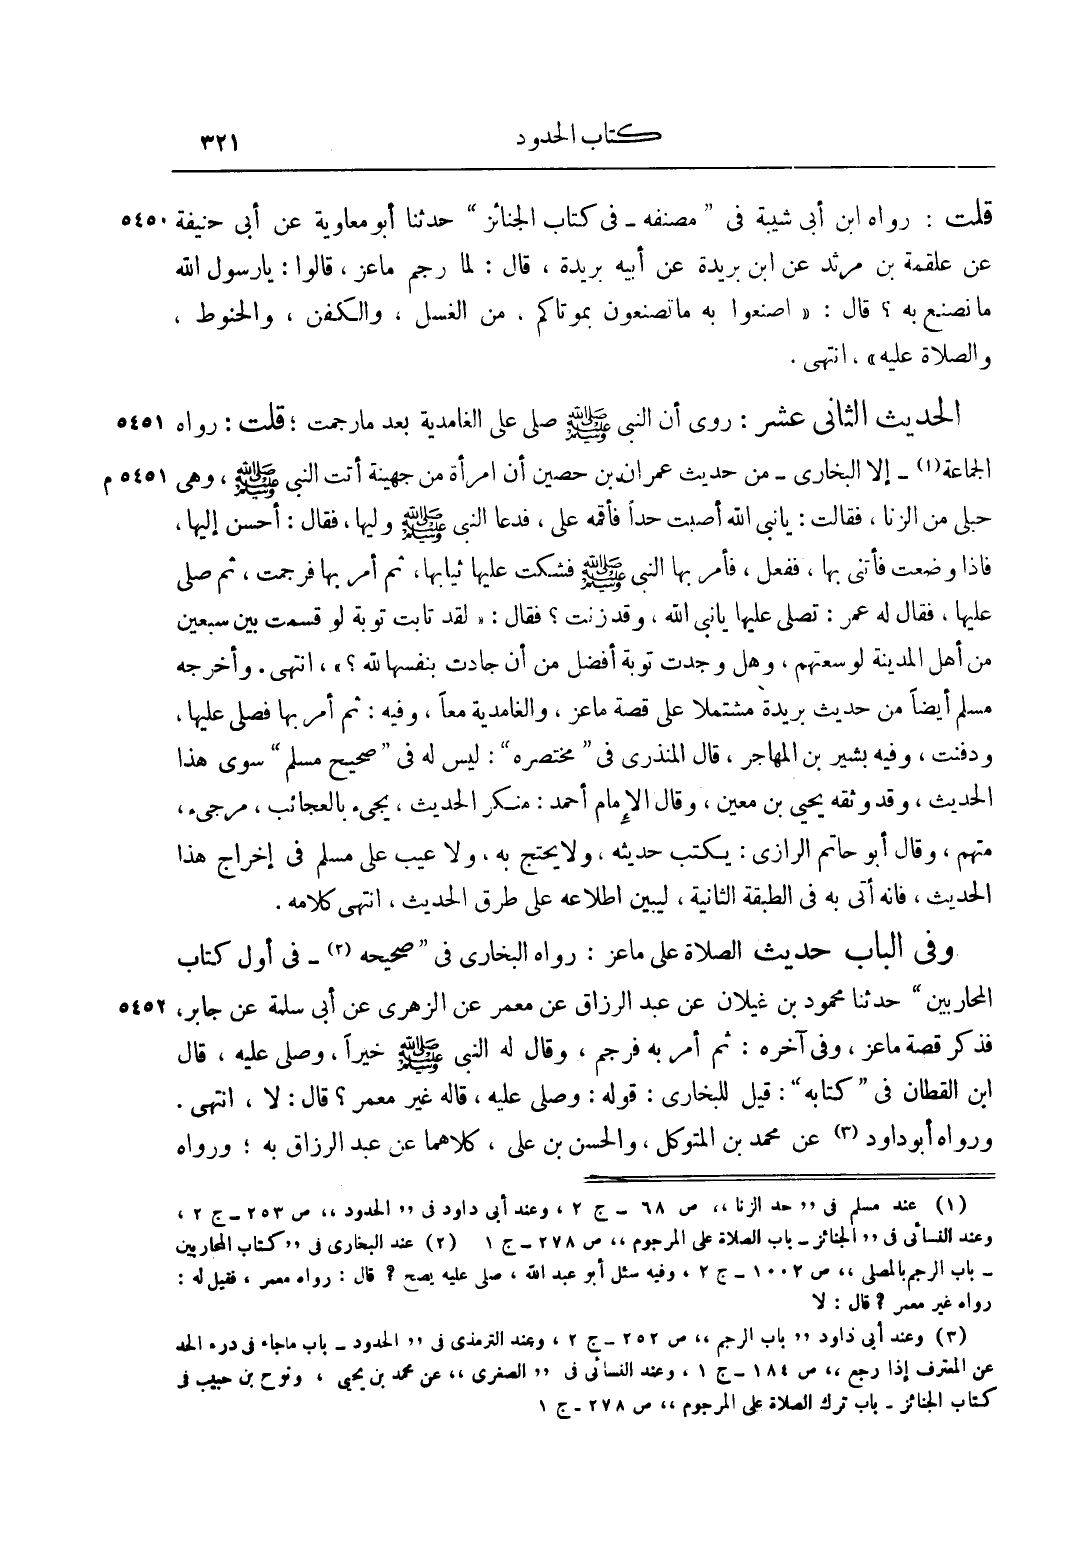 كتاب الحدود ٣٢١
قلت : رواه ابن أبى شيبة فى ” مصنفه ـ فى كتاب الجنائز “ حدثنا أبو معاوية عن أبى حنيفة ٥٤٥٠
عن علقمة بن مرثد عن ابن بريدة عن أبيه بريدة ، قال : لما رجم ماعز ، قالوا : يارسول الله
مانصنع به ؟ قال : « اصنعوا به ماتصنعون بموتاكم ، من الغسل ، والكفن ، والحنوط ،
والصلاة عليه» ، انتهى .
الحديث الثانى عشر : روى أن النبى ﷺ صلى على الغامدية بعد مارجمت ؛ قلت : رواه ٥٤٥١
الجماعة (١) ـ إلا البخارى ـ من حديث عمران بن حصين أن امرأة من جهينة أتت النبى ﷺ ، وهى ٥٤٥١ م
حبلى من الزنا ، فقالت : يانبى الله أصبت حداً فأقمه على ، فدعا النبى ﷺ وليها ، فقال : أحسن إليها ،
فاذا وضعت فأتنى بها ، ففعل ، فأمر بها النبى ﷺ فشكت عليها ثيابها ، ثم أمر بها فرجمت ، ثم صلى
عليها ، فقال له عمر : تصلى عليها يانبى الله ، وقد زنت ؟ فقال : « لقد تابت توبة لو قسمت بين سبعين
من أهل المدينة لوسعتهم ، وهل وجدت توبة أفضل من أن جادت بنفسها لله ؟» ، انتهى . وأخرجه
مسلم أيضاً من حديث بريدة مشتملا على قصة ماعز ، والغامدية معاً ، وفيه : ثم أمر بها فصلى عليها ،
ودفنت ، وفيه بشير بن المهاجر ، قال المنذرى فى ” مختصره “ : ليس له فى ” صحيح مسلم “ سوى هذا
الحديث ، وقد وثقه يحيى بن معين ، وقال الإمام أحمد : منكر الحديث ، يجىء بالعجائب ، مرجىء ،
متهم ، وقال أبو حاتم الرازى : يكتب حديثه ، ولايحتج به ، ولا عيب على مسلم فى إخراج هذا
الحديث ، فانه أتى به فى الطبقة الثانية ، ليبين اطلاعه على طرق الحديث ، انتهى كلامه .
وفى الباب حديث الصلاة على ماعز : رواه البخارى فى ” صحيحه (٢) ـ فى أول كتاب
المحاربين “ حدثنا محمود بن غيلان عن عبد الرزاق عن معمر عن الزهرى عن أبى سلمة عن جابر ، ٥٤٥٢
فذكر قصة ماعز ، وفى آخره : ثم أمر به فرجم ، وقال له النبى ﷺ خيراً ، وصلى عليه ، قال
ابن القطان فى ” كتابه “ : قيل للبخارى : قوله : وصلى عليه ، قاله غير معمر ؟ قال : لا ، انتهى .
ورواه أبو داود (٣) عن محمد بن المتوكل ، والحسن بن على ، كلاهما عن عبد الرزاق به ؛ ورواه
(١) عند مسلم فى ،، حد الزنا ،، ص ٦٨ ـ ج ٢ ، وعند أبى داود فى ،، الحدود ،، ص ٢٥٣ ـ ج ٢ ،
وعند النسائى فى ،، الجنائز ـ باب الصلاة على المرجوم ،، ص ٢٧٨ ـ ج ١ (٢) عند البخارى فى ،، كتاب المحاربين
ـ باب الرجم بالمصلى ،، ص ١٠٠٢ ـ ج ٢ ، وفيه سئل أبو عبد الله ، صلى عليه يصح ؟ قال : رواه معمر ، فقيل له :
رواه غير معمر ؟ قال : لا
(٣) وعند أبى داود ،، باب الرجم ،، ص ٢٥٢ ـ ج ٢ ، وعند الترمذى فى ،، الحدود ـ باب ماجاء فى درء الحد
عن المعترف إذا رجع ،، ص ١٨٤ ـ ج ١ ، وعند النسائى فى ،، الصغرى ،، عن محمد بن يحيى ، ونوح بن حبيب فى
كتاب الجنائز ـ باب ترك الصلاة على المرجوم ،، ص ٢٧٨ ـ ج ١